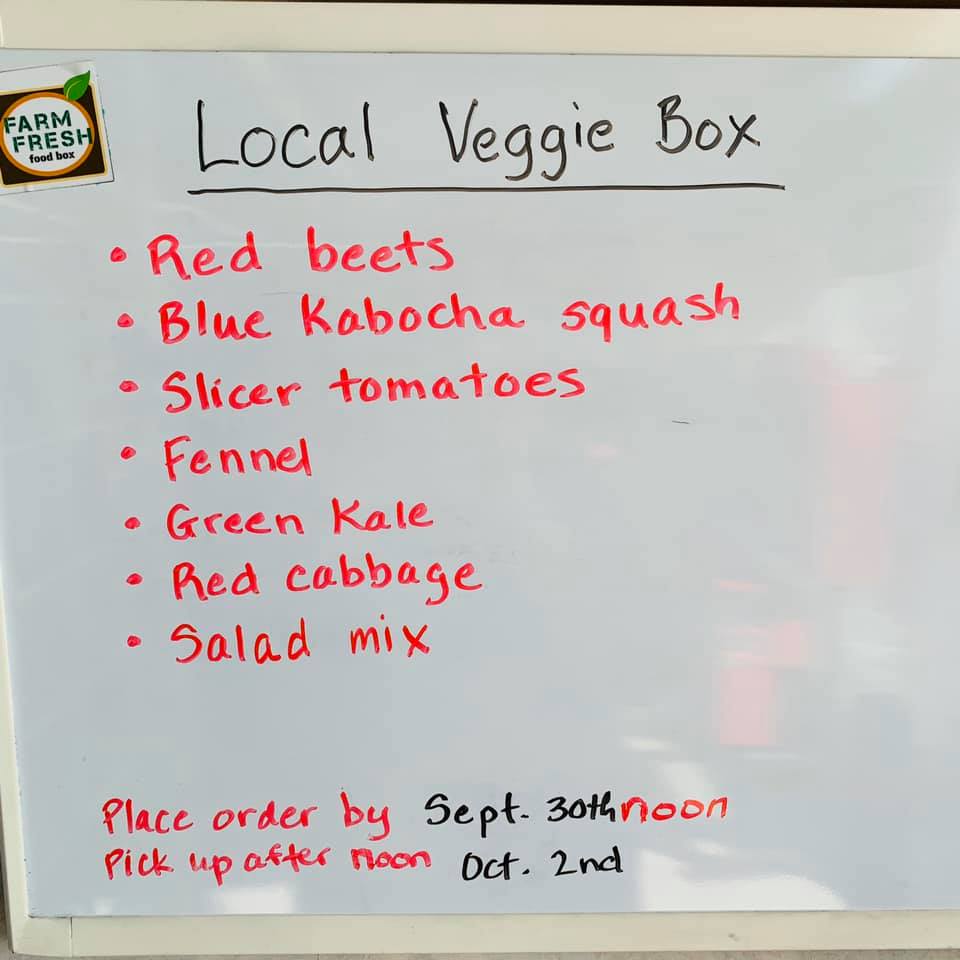 FARM
FRESH
food box
Local Veggie Box
• Red beets
• Blue Kabocha squash
• Slicer tomatoes
• Fennel
• Green Kale
• Red cabbage
• Salad mix
Place order by Sept. 30th noon
Pick up after noon Oct. 2nd